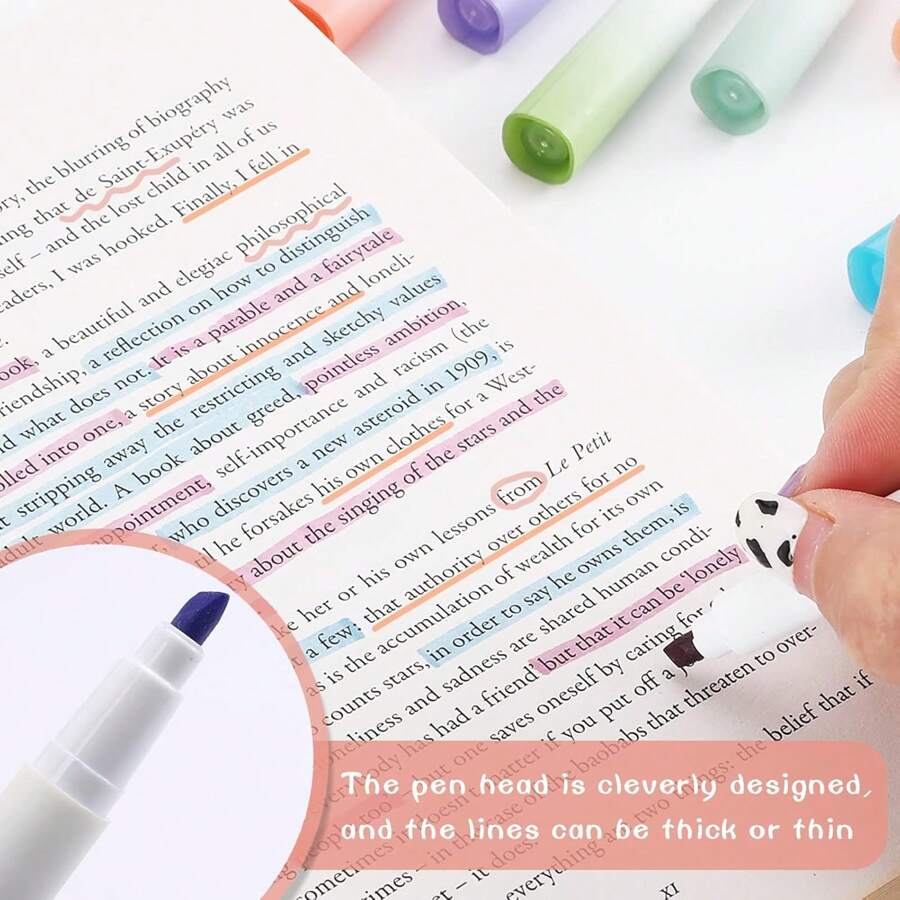 ry, the blurring of biography
ng that de Saint-Exupéry was
self – and the lost child in all of us
eaders, I was hooked. Finally, I fell in
ook, a beautiful and elegiac philosophical
riendship, a reflection on how to distinguish
d what does not. It is a parable and a fairytale
olled into one, a story about innocence and loneli-
t stripping away the restricting and sketchy values
adult world. A book about greed, pointless ambition,
appointment, self-importance and racism (the
who discovers a new asteroid in 1909, is
til he forsakes his own clothes for a West-
ry about the singing of the stars and the
ke her or his own lessons from Le Petit
t a few: that authority over others for no
as is the accumulation of wealth for its own
counts stars in order to say he owns them, is
oneliness and sadness are shared human condi-
body has had a friend' but that it can be 'lonely
people too – but one saves oneself by caring for
sometimes it doesn't matter if you put off a
times – in the case of the baobabs that threaten to over-
et – it does.
everything are two things: the belief that if
XI
The pen head is cleverly designed,
and the lines can be thick or thin